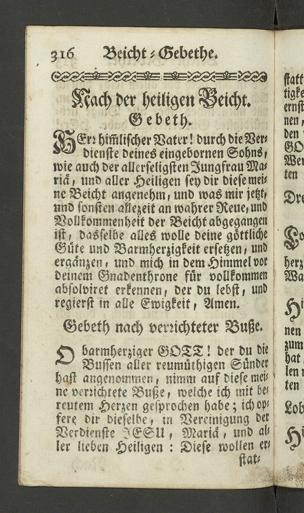 316 Beicht-Gebethe.
Nach der heiligen Beicht.
Gebeth.
HErr himlischer Vater! durch die Ver-
dienste deines eingebornen Sohns,
wie auch der allerseligsten Jungfrau Ma-
riä, und aller Heiligen sey dir diese mei-
ne Beicht angenehm, und was mir jetzt,
und sonsten allezeit an wahrer Reue, und
Vollkommenheit der Beicht abgegangen
ist, dasselbe alles wolle deine göttliche
Güte und Barmherzigkeit ersetzen, und
ergänzen, und mich in dem Himmel vor
deinem Gnadenthrone für vollkommen
absolviret erkennen, der du lebst, und
regierst in alle Ewigkeit, Amen.
Gebeth nach verrichteter Buße.
O barmherziger GOTT! der du die
Bussen aller reumüthigen Sünder
hast angenommen, nimm auf diese mei-
ne verrichtete Buße, welche ich mit be-
reutem Herzen gesprochen habe; ich op-
fere dir dieselbe, in Vereinigung der
Verdienste JESU, Mariä, und al-
ler lieben Heiligen: Diese wollen er-
stat-